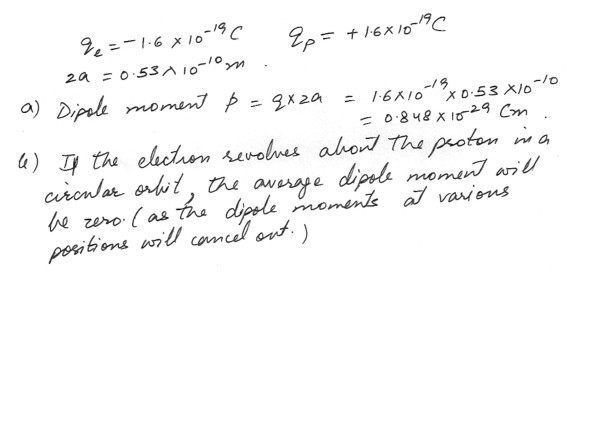 qe = -1.6 × 10⁻¹⁹ C qp = +1.6×10⁻¹⁹ C
2a = 0.53 ^ 10⁻¹⁰ m .
a) Dipole moment p = q×2a = 1.6×10⁻¹⁹ × 0.53 ×10⁻¹⁰
= 0.848 × 10⁻²⁹ Cm .
b) If the electron revolves about the proton in a
circular orbit, the average dipole moment will
be zero. (as the dipole moments at various
positions will cancel out.)